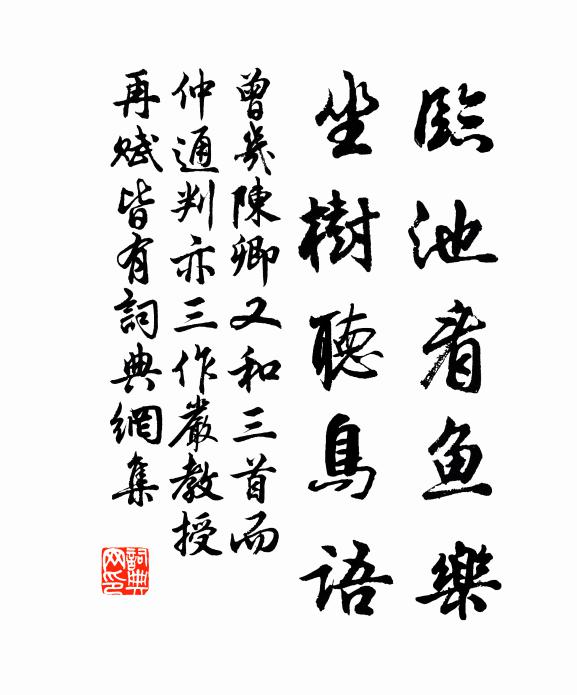 臨池看魚樂
坐樹聽鳥語
曾幾陳卿又和三首而
仲通判亦三作嚴教授
再賦皆有詞典網集
詞典網印